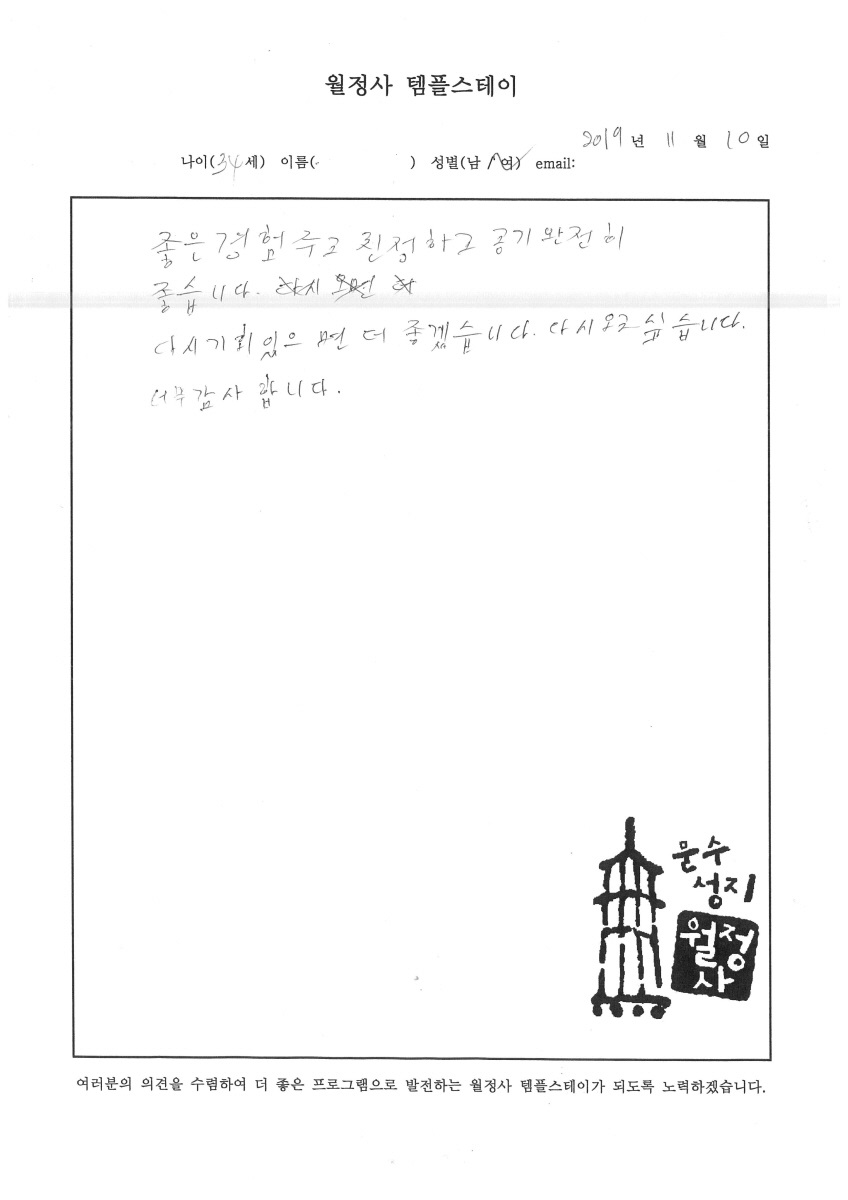 월정사 템플스테이
2019 년 11 월 10 일
나이(34세) 이름( ) 성별(남/여) email:
좋은 경험 주고 친정하고 공기 완전히
좋습니다. 다시 오면
다시 기회 있으면 더 좋겠습니다. 다시 오고 싶습니다.
너무 감사 합니다.
문수
성지
월정
사
여러분의 의견을 수렴하여 더 좋은 프로그램으로 발전하는 월정사 템플스테이가 되도록 노력하겠습니다.